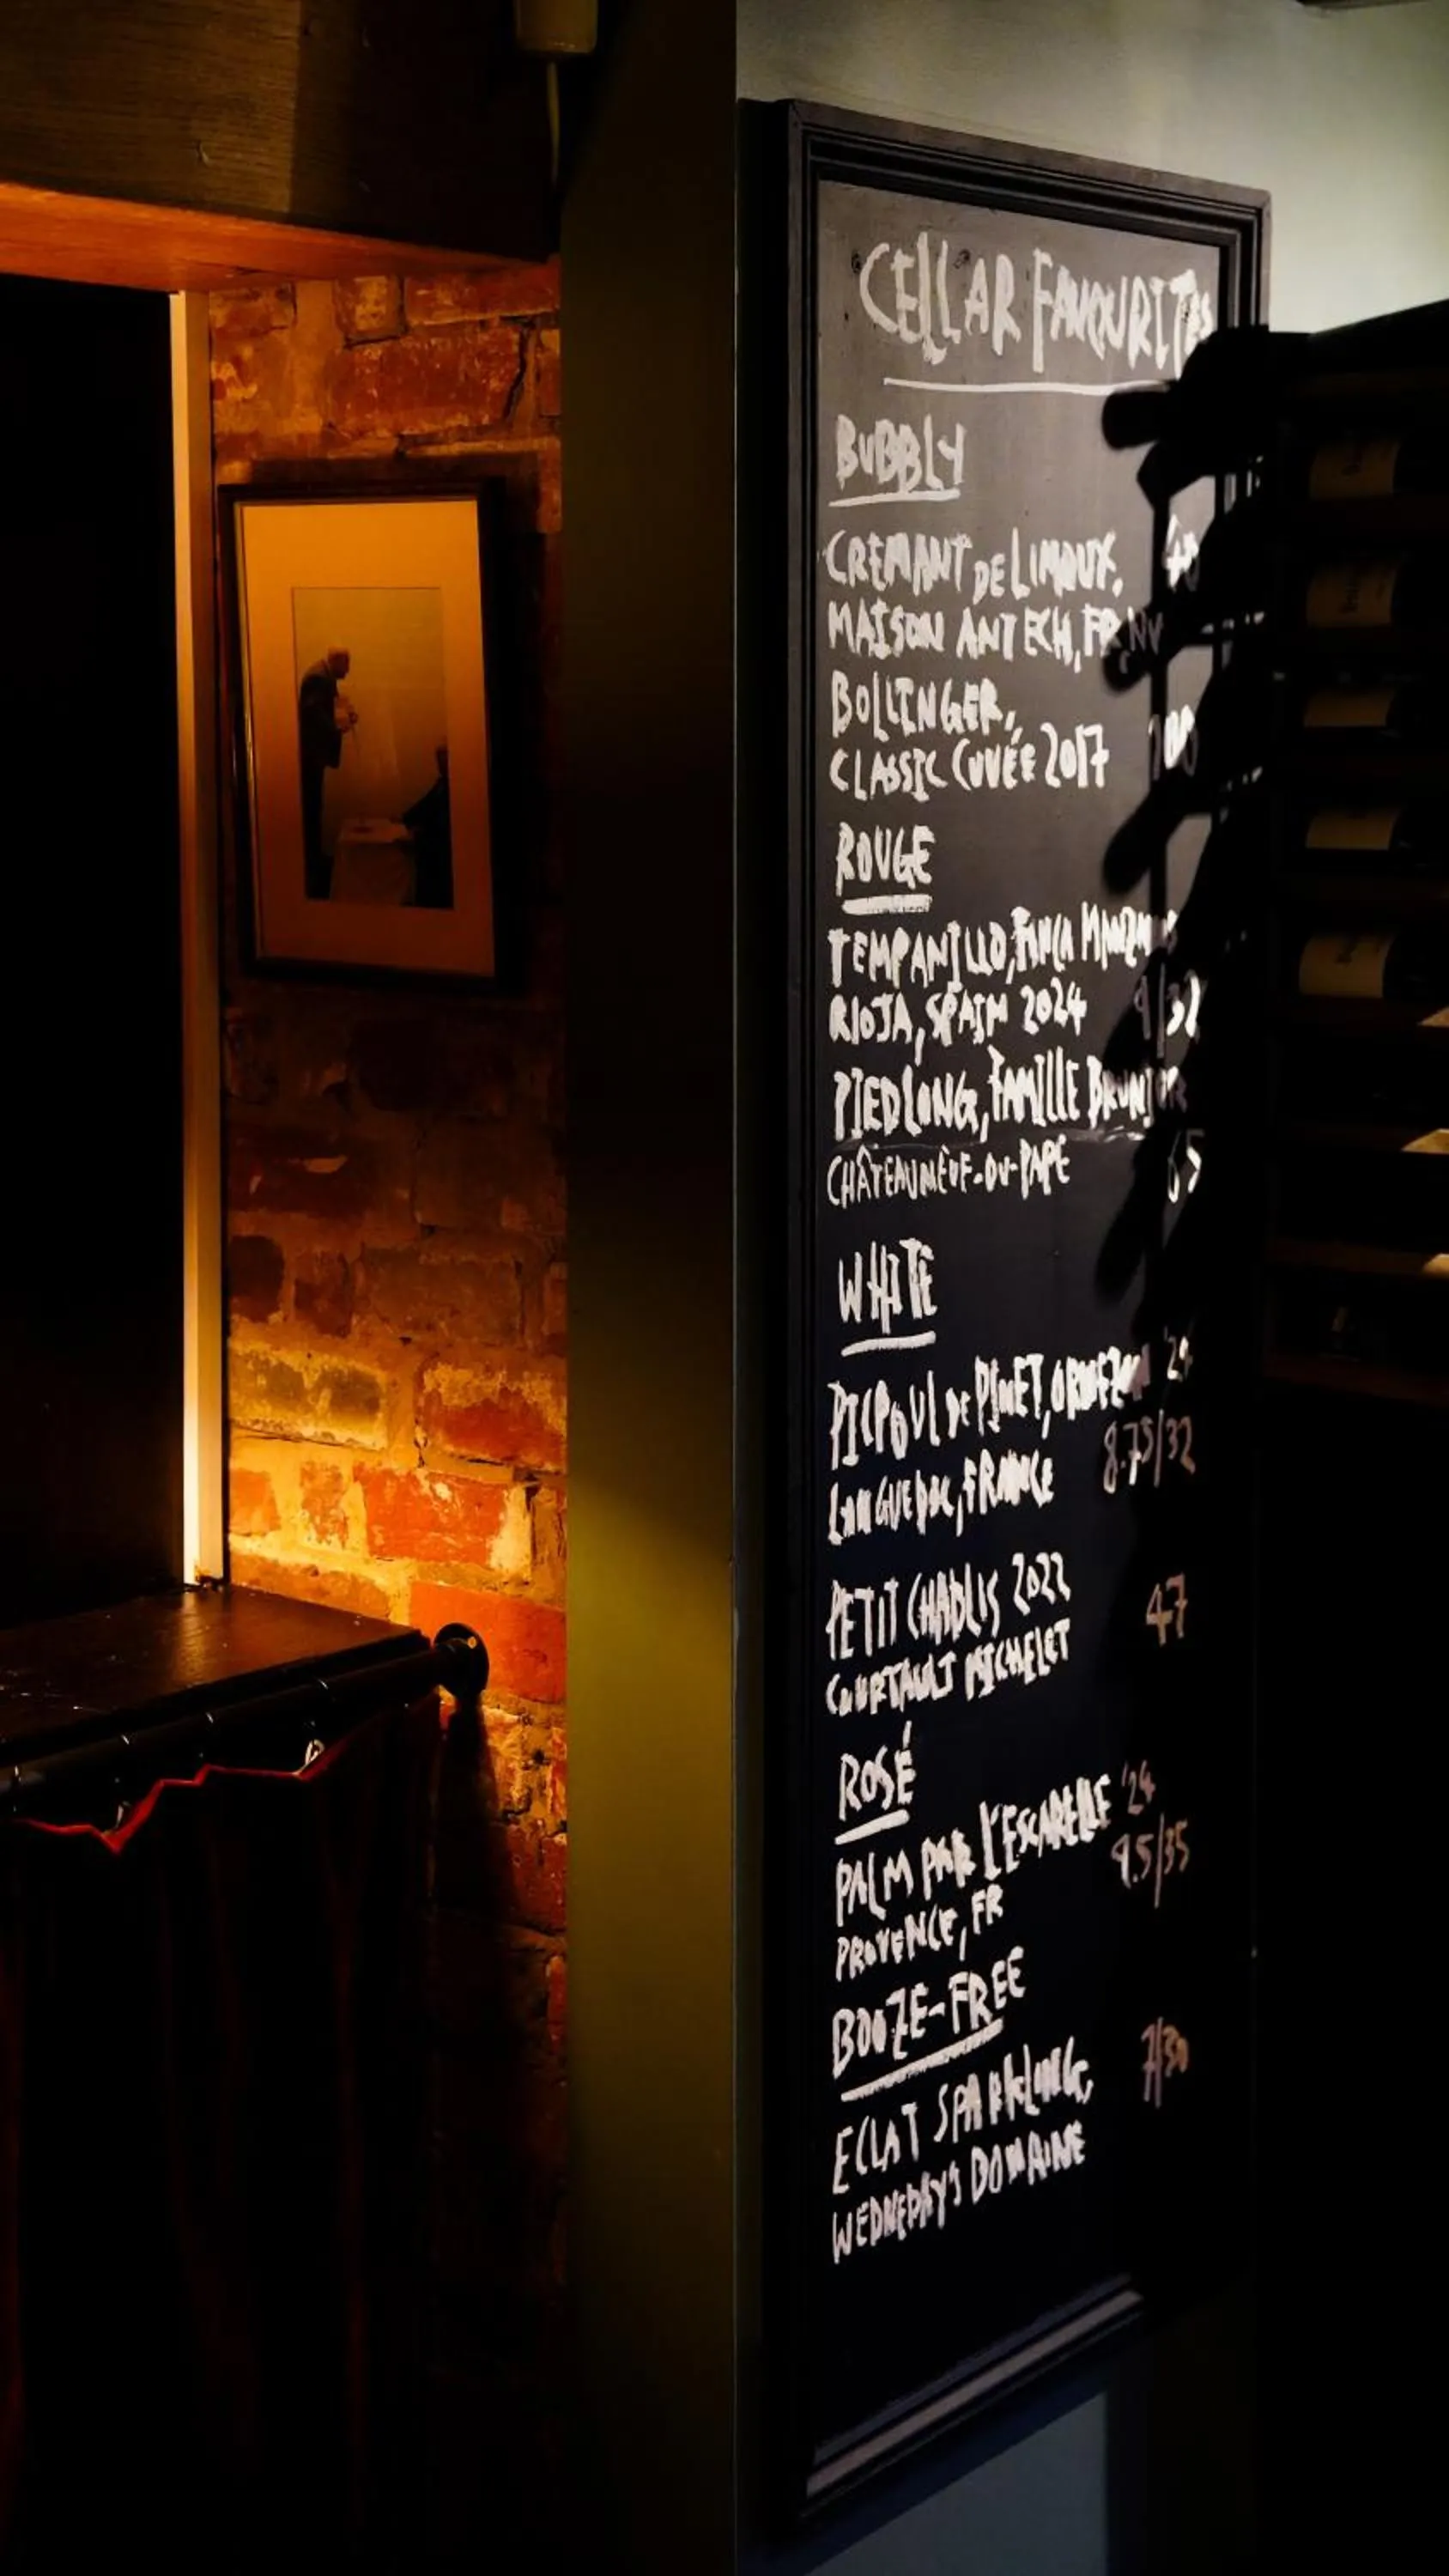 CELLAR FAVOURITES
BUBBLY
CREMANT DE LIMOUX,
MAISON ANTECH, FR NV
BOLLINGER,
CLASSIC CUVÉE 2017
ROUGE
TEMPANILLO, FINCA
RIOJA, SPAIN 2024 9/32
PIEDLONG, FAMILLE
CHÂTEAUNEUF-DU-PAPE 65
WHITE
PICPOUL DE PINET, '24
LANGUEDOC, FRANCE 8.75/32
PETIT CHABLIS 2022 47
COURTAULT MICHELET
ROSÉ
PALM PAR L'ESCARELLE '24
PROVENCE, FR 9.5/35
BOOZE-FREE
ECLAT SPARKLING, 7/30
WEDNEDAY'S DOMAINE